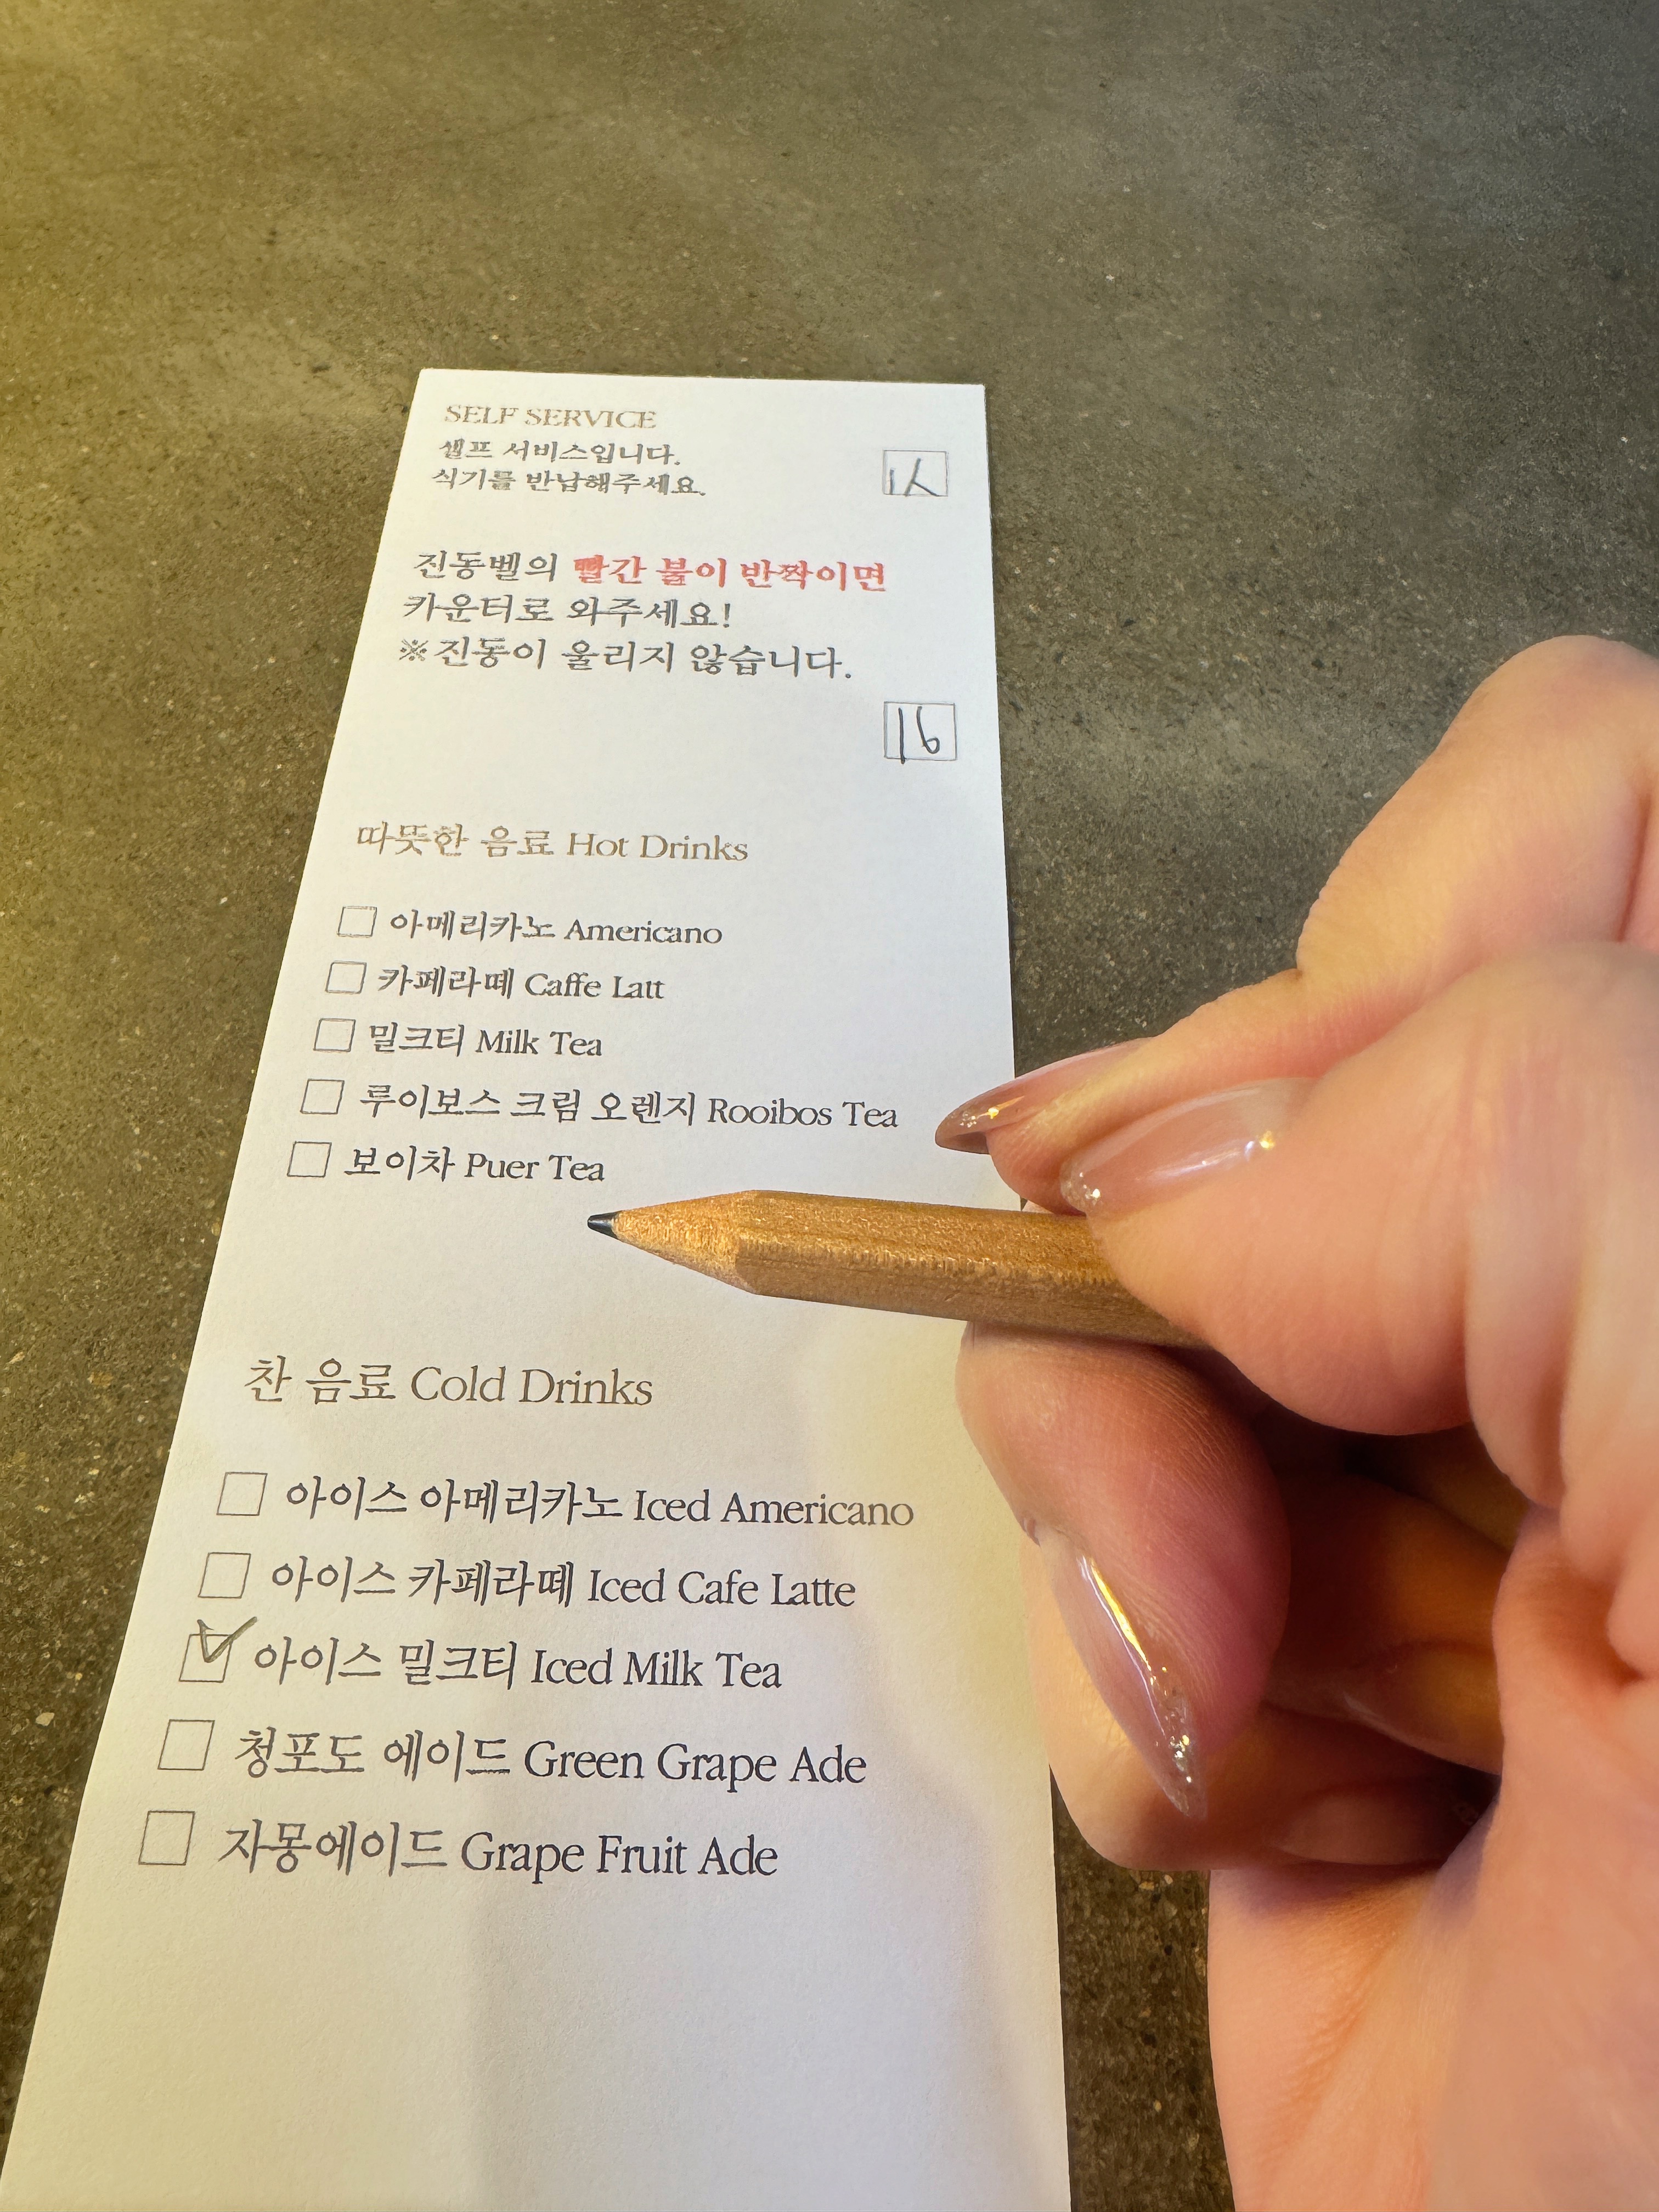 SELF SERVICE
셀프 서비스입니다.
식기를 반납해주세요.
1人
진동벨의 빨간 불이 반짝이면
카운터로 와주세요!
※진동이 울리지 않습니다.
16
따뜻한 음료 Hot Drinks
아메리카노 Americano
카페라떼 Caffe Latt
밀크티 Milk Tea
루이보스 크림 오렌지 Rooibos Tea
보이차 Puer Tea
찬 음료 Cold Drinks
아이스 아메리카노 Iced Americano
아이스 카페라떼 Iced Cafe Latte
아이스 밀크티 Iced Milk Tea
청포도 에이드 Green Grape Ade
자몽에이드 Grape Fruit Ade